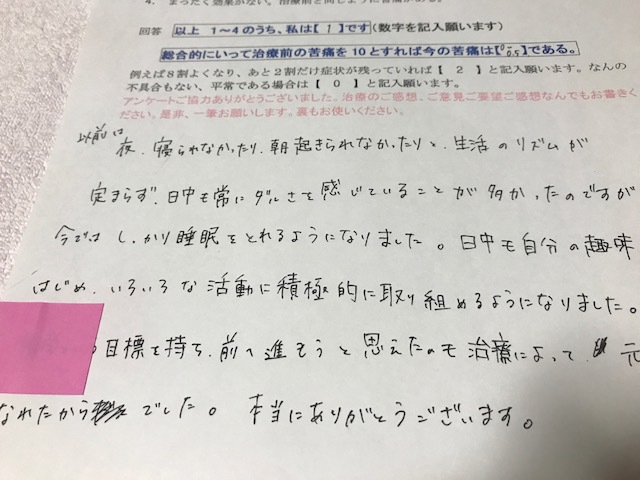 4. まったく効果がない。治療前と同じように苦痛がある。
回答 以上 1〜4のうち、私は【 1 】です(数字を記入願います)
総合的にいって治療前の苦痛を10とすれば今の苦痛は【0~0.5】である。
例えば8割よくなり、あと2割だけ症状が残っていれば【 2 】と記入願います。なんの
不具合もない、平常である場合は【 0 】と記入願います。
アンケートご協力ありがとうございました。治療のご感想、ご意見ご要望ご感想なんでもお書きく
ださい。是非、一筆お願いします。裏もお使いください。
以前は
夜、寝られなかったり、朝起きられなかったりと、生活のリズムが
定まらず、日中も常にダルさを感じていることが多かったのですが
今では しっかり睡眠をとれるようになりました。日中も自分の趣味
はじめ、いろいろな活動に積極的に取り組めるようになりました。
の目標を持ち、前へ進もうと思えたのも治療によって、元
なれたからでした。本当にありがとうございます。